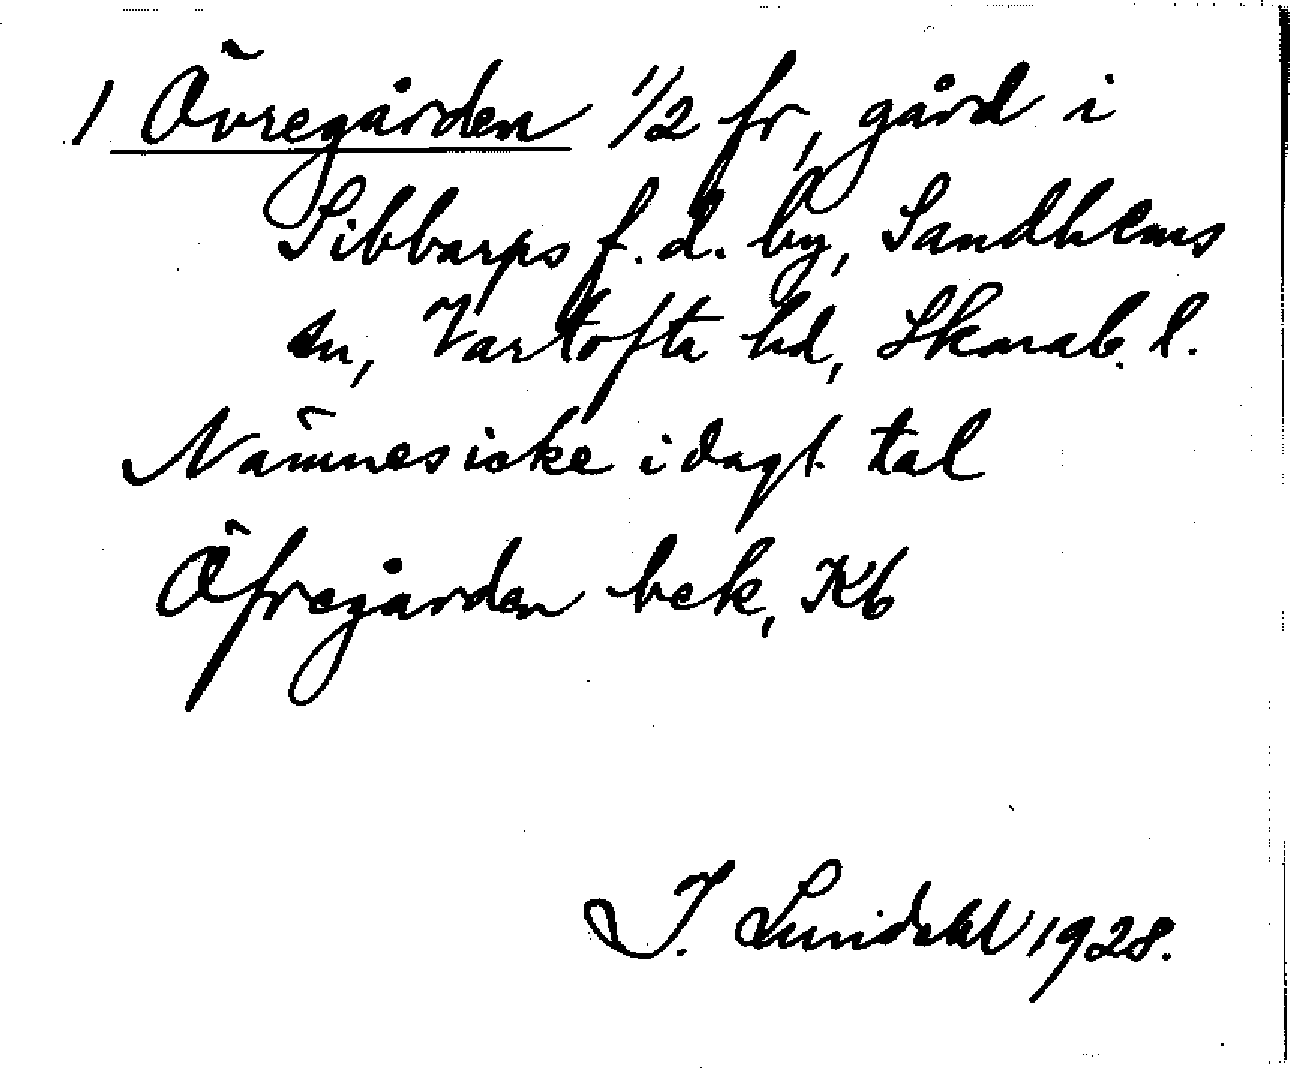 1 Övregården 1/2 fr, gård i
Sibbarps f. d. by, Sandhems
sn, Vartofta hd, Skarab. l.
Nämnes icke i dagl. tal
Öfregården bek, Kb
I. Lundahl 1928.